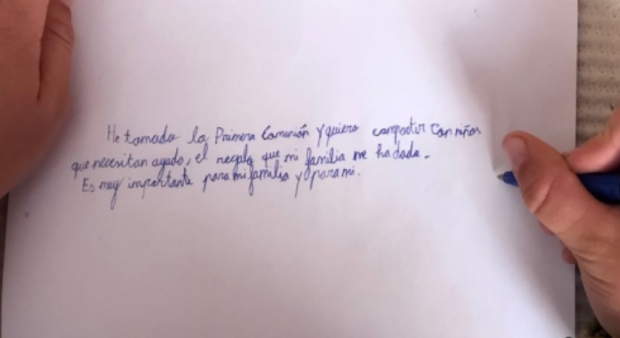 He tomado la Primera Comunión y quiero compartir con niños
que necesitan ayuda, el regalo que mi familia me ha dado.
Es muy importante para mi familia y para mi.